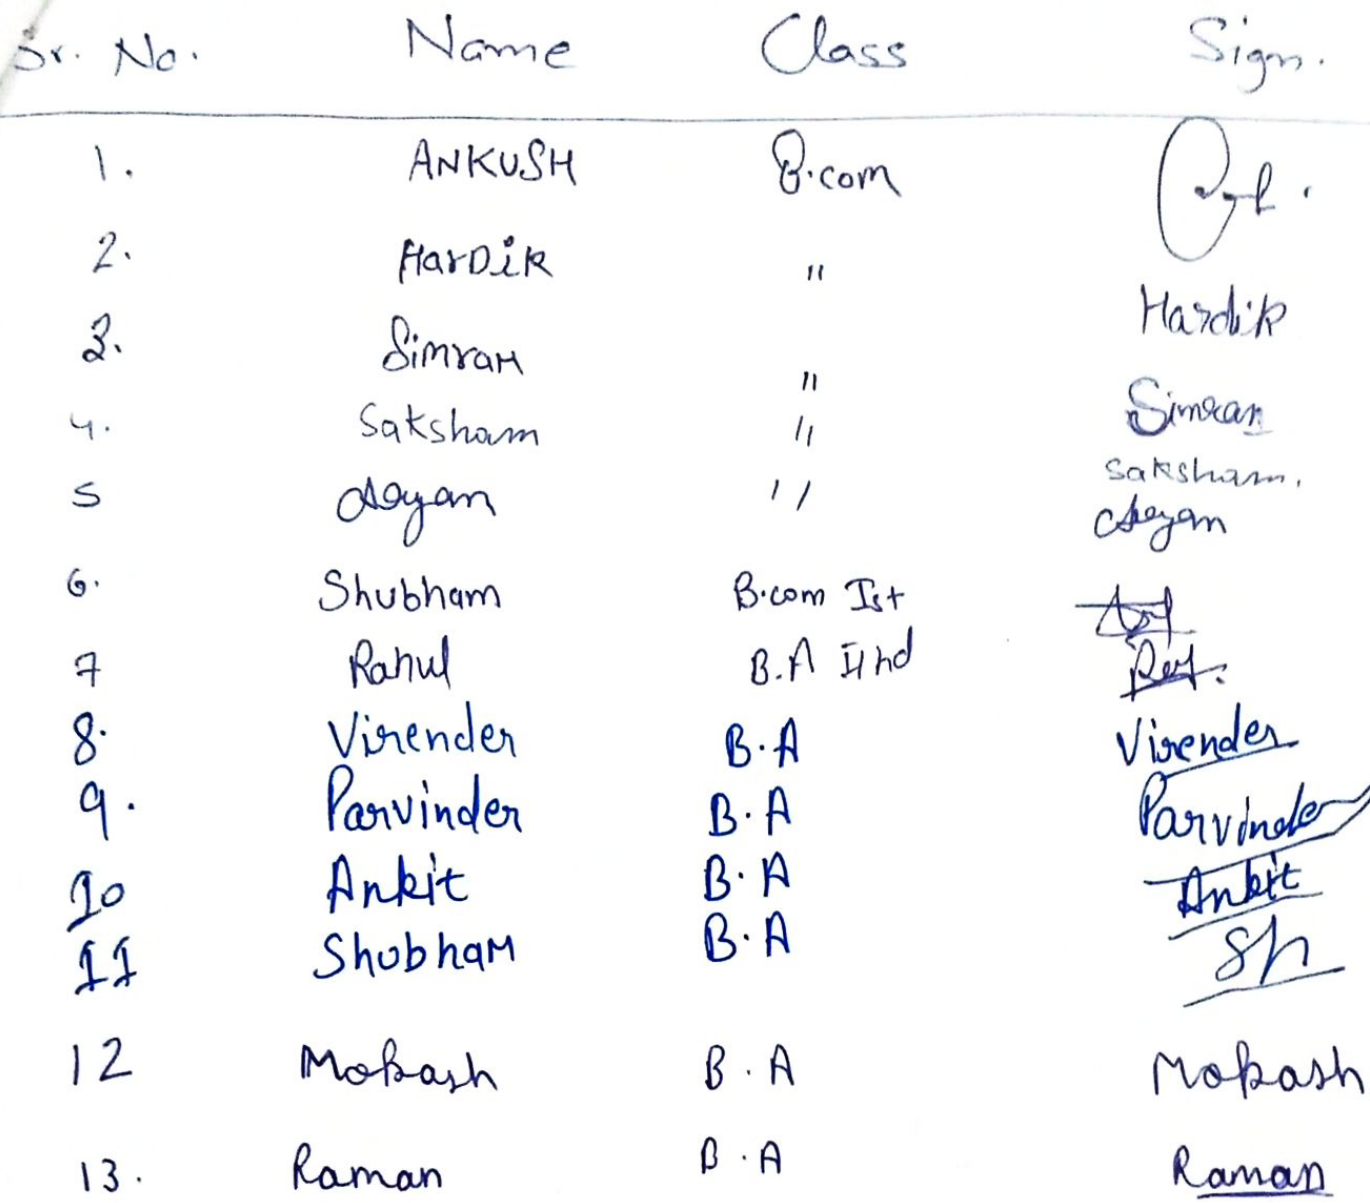 Sr. No. Name Class Sign.
1. ANKUSH B.com
2. HarDiK " Hardik
3. Simran " Simran
4. Saksham " Saksham.
5 "
6. Shubham B.com Ist
7 Rahul B.A IInd
8. Virender B.A Virender
9. Parvinder B.A Parvinder
10 Ankit B.A Ankit
11 Shubham B.A Sh
12 Mokash B.A Mokash
13. Raman B.A Raman